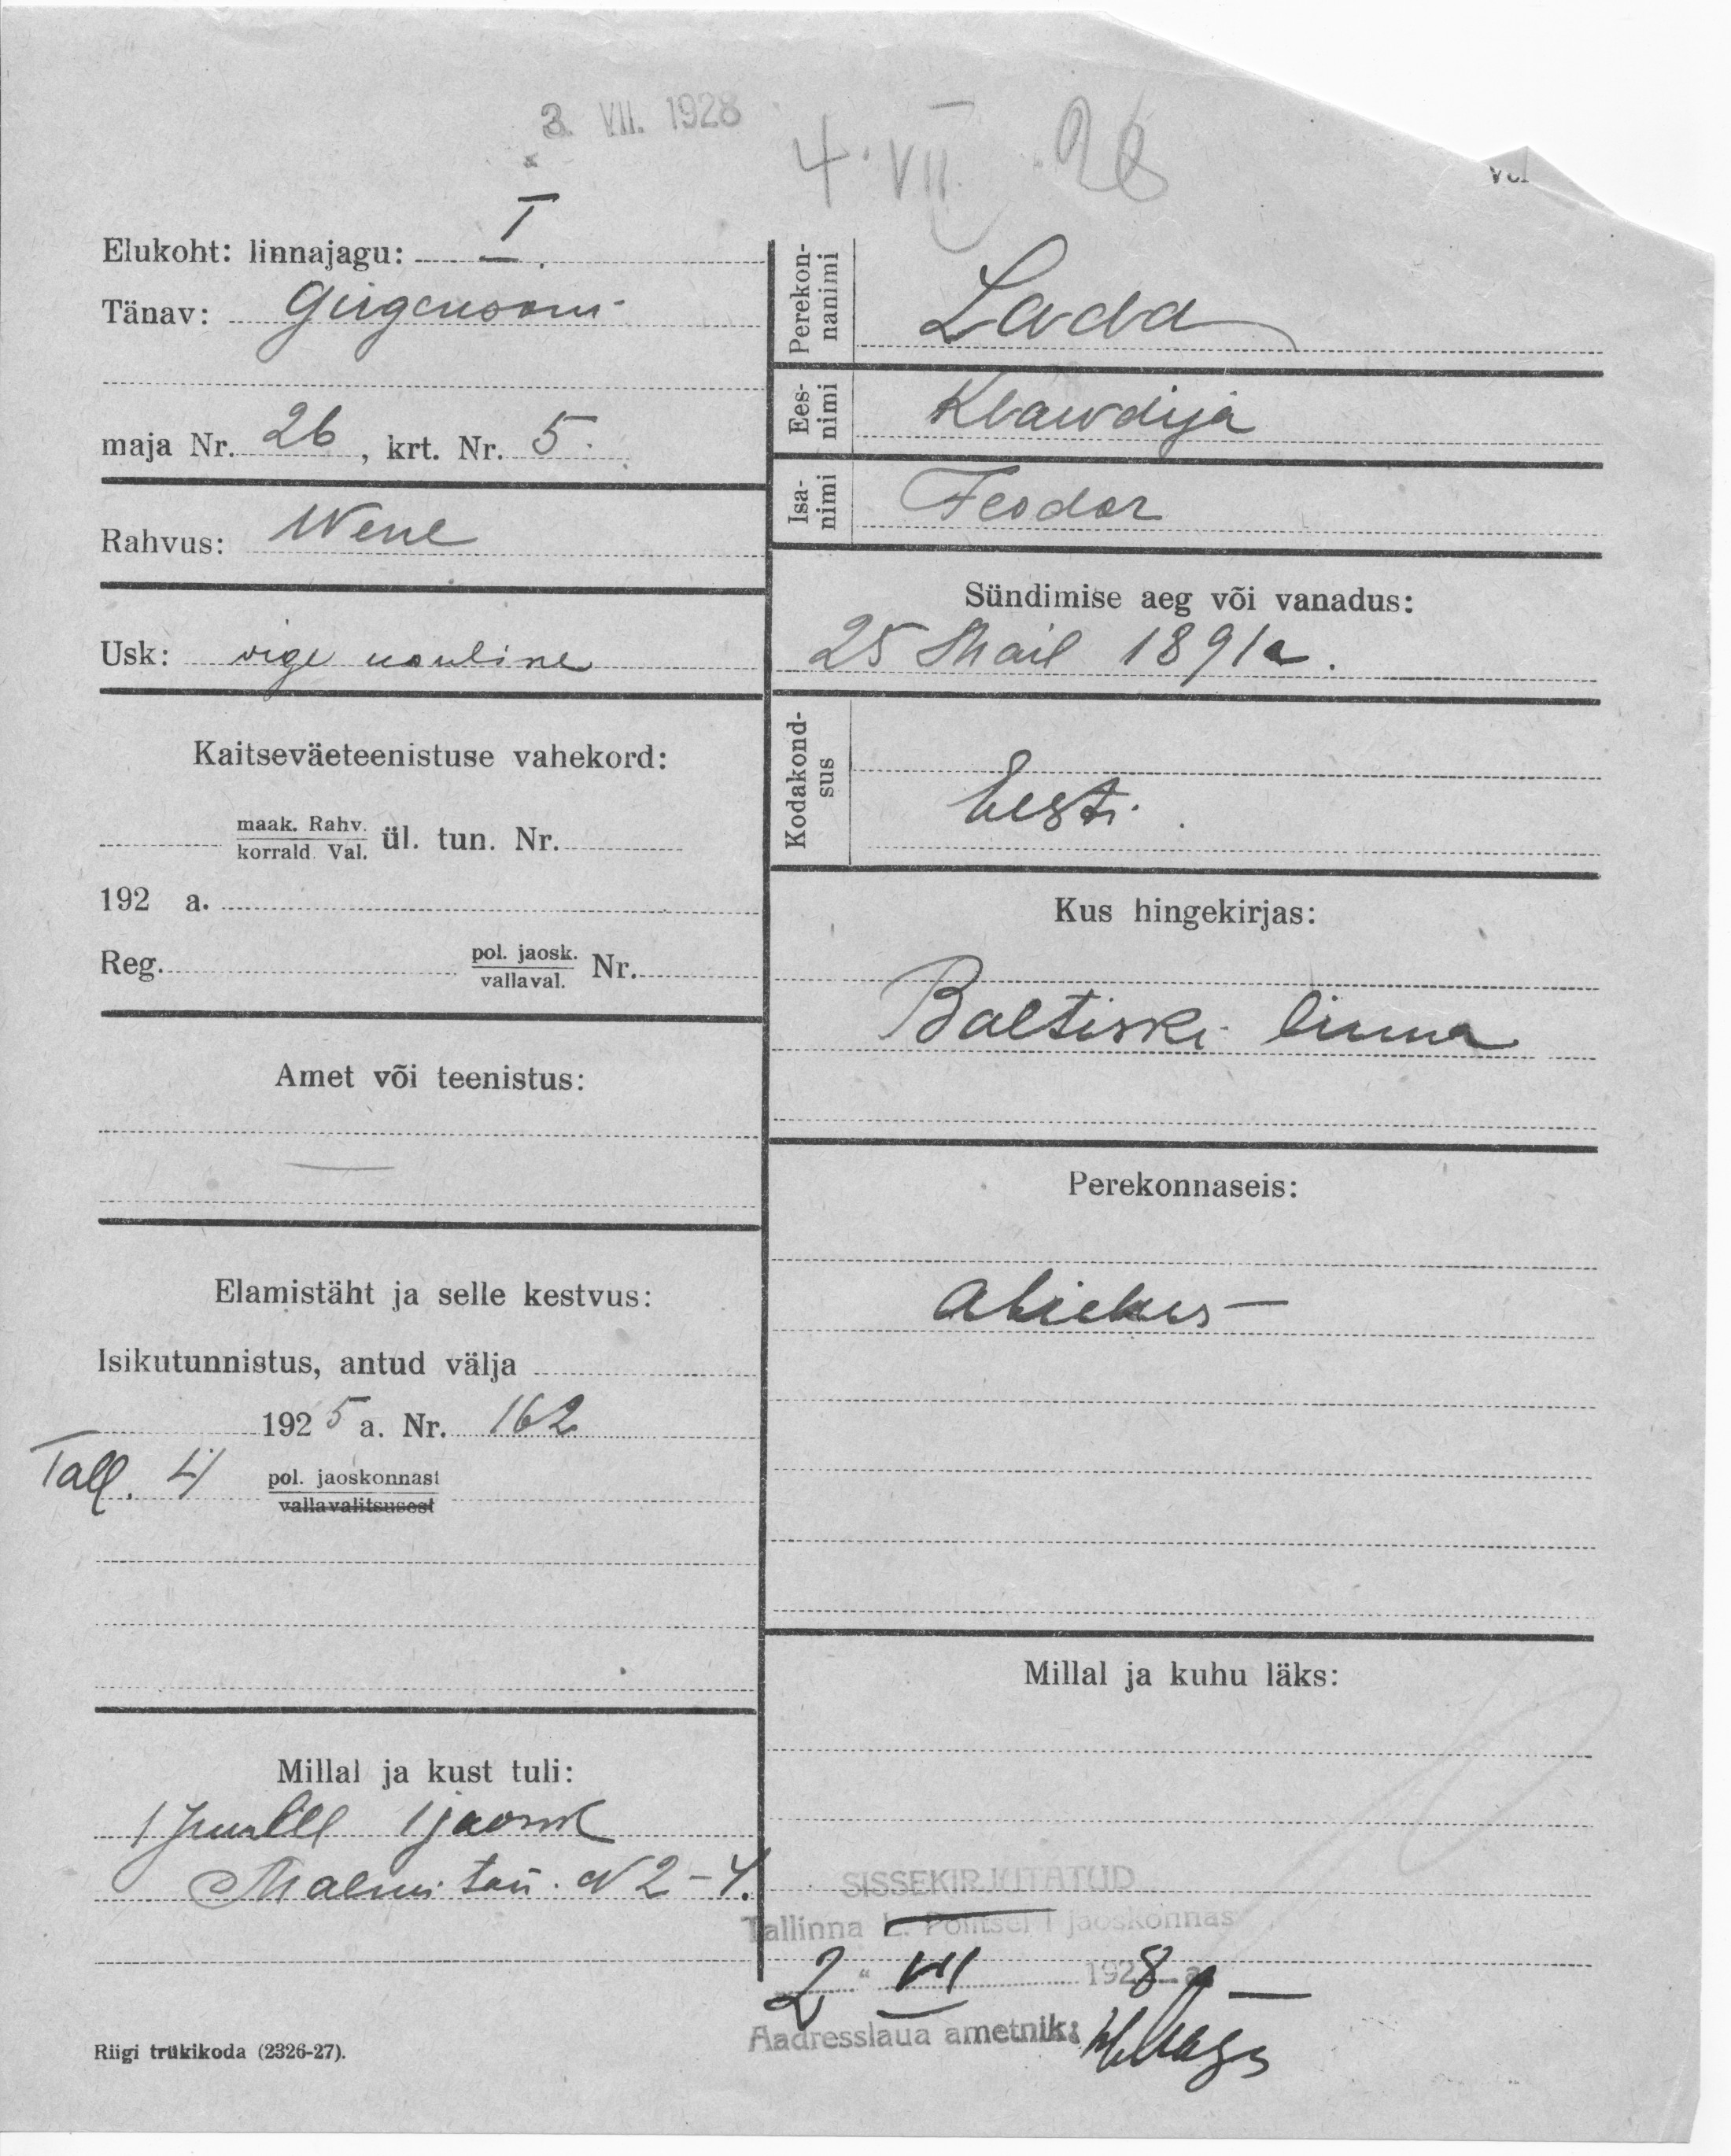 3. VII. 1928
4. VII. 28
Elukoht: linnajagu: I.
Tänav: Girgensoni
maja Nr. 26, krt. Nr. 5.
Rahvus: Wene
Usk: õige usuline
Kaitseväeteenistuse vahekord:
maak. Rahv.
korrald. Val. ül. tun. Nr.
192 a.
Reg. pol. jaosk.
vallaval. Nr.
Amet või teenistus:
—
Elamistäht ja selle kestvus:
Isikutunnistus, antud välja
1925 a. Nr. 162
Tall. 4 pol. jaoskonnast
vallavalitsusest
Millal ja kust tuli:
1 Juulil 1 jaosk
Malmi tän. N 2-4.
Riigi trükikoda (2326-27).
Perekon-
nanimi
Lada
Ees-
nimi
Klawdija
Isa-
nimi
Feodor
Sündimise aeg või vanadus:
25 Mail 1891 a.
Kodakond-
sus
Eesti.
Kus hingekirjas:
Baltiski linna
Perekonnaseis:
abielus —
Millal ja kuhu läks:
SISSEKIRJUTATUD
Tallinna L. Politsei I jaoskonnas
2 " VII 1928 a.
Aadresslaua ametnik: